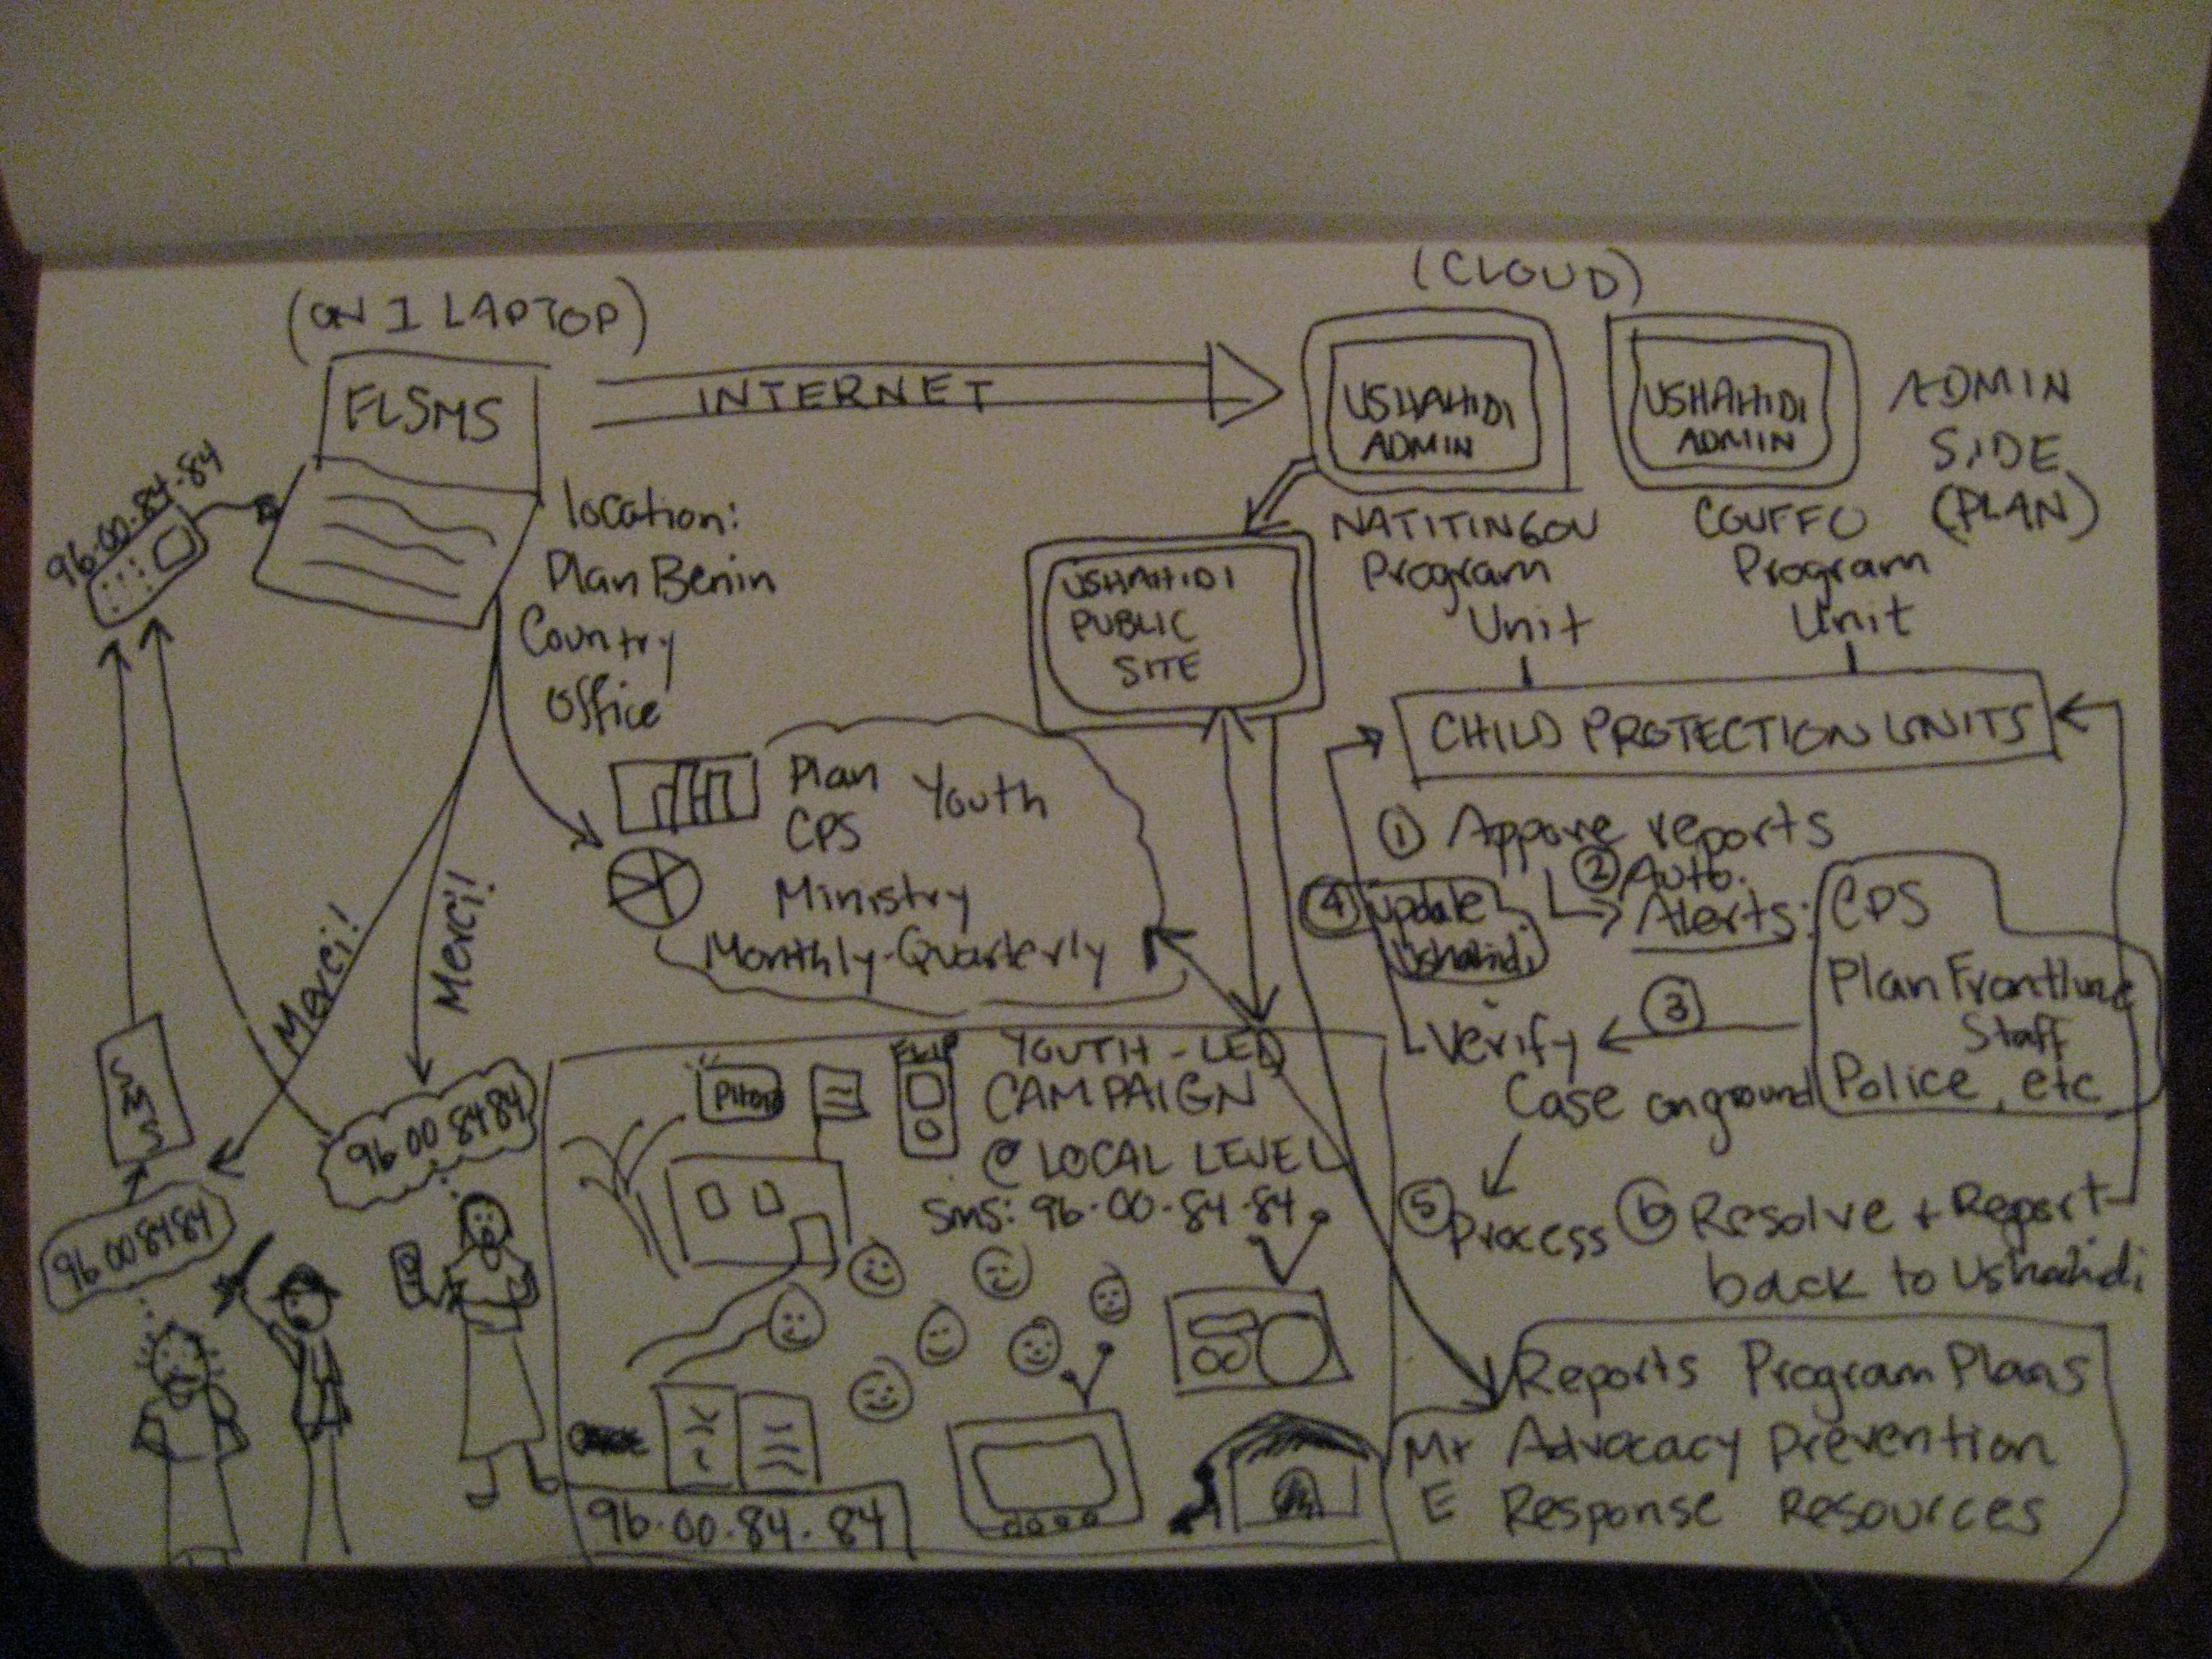 (ON 1 LAPTOP)
FLSMS
96-00-84-84
INTERNET
location:
Plan Benin
Country
Office
(CLOUD)
USHAHIDI
ADMIN
USHAHIDI
ADMIN
ADMIN
SIDE
(PLAN)
NATITINGOU
Program
Unit
COUFFO
Program
Unit
USHAHIDI
PUBLIC
SITE
CHILD PROTECTION UNITS
Plan Youth
CPS
Ministry
Monthly-Quarterly
Merci!
Merci!
① Appove reports
② Auto.
Alerts:
CPS
Plan Frontline
Staff
Police, etc
③
④ update
Ushahidi
Verify
Case on ground
⑤ Process
⑥ Resolve + Report
back to Ushahidi
SMS
96 00 84 84
96 00 84 84
YOUTH-LED
CAMPAIGN
@ LOCAL LEVEL
SMS: 96-00-84-84
96-00-84-84
Reports Program Plans
M+ Advocacy Prevention
E Response Resources